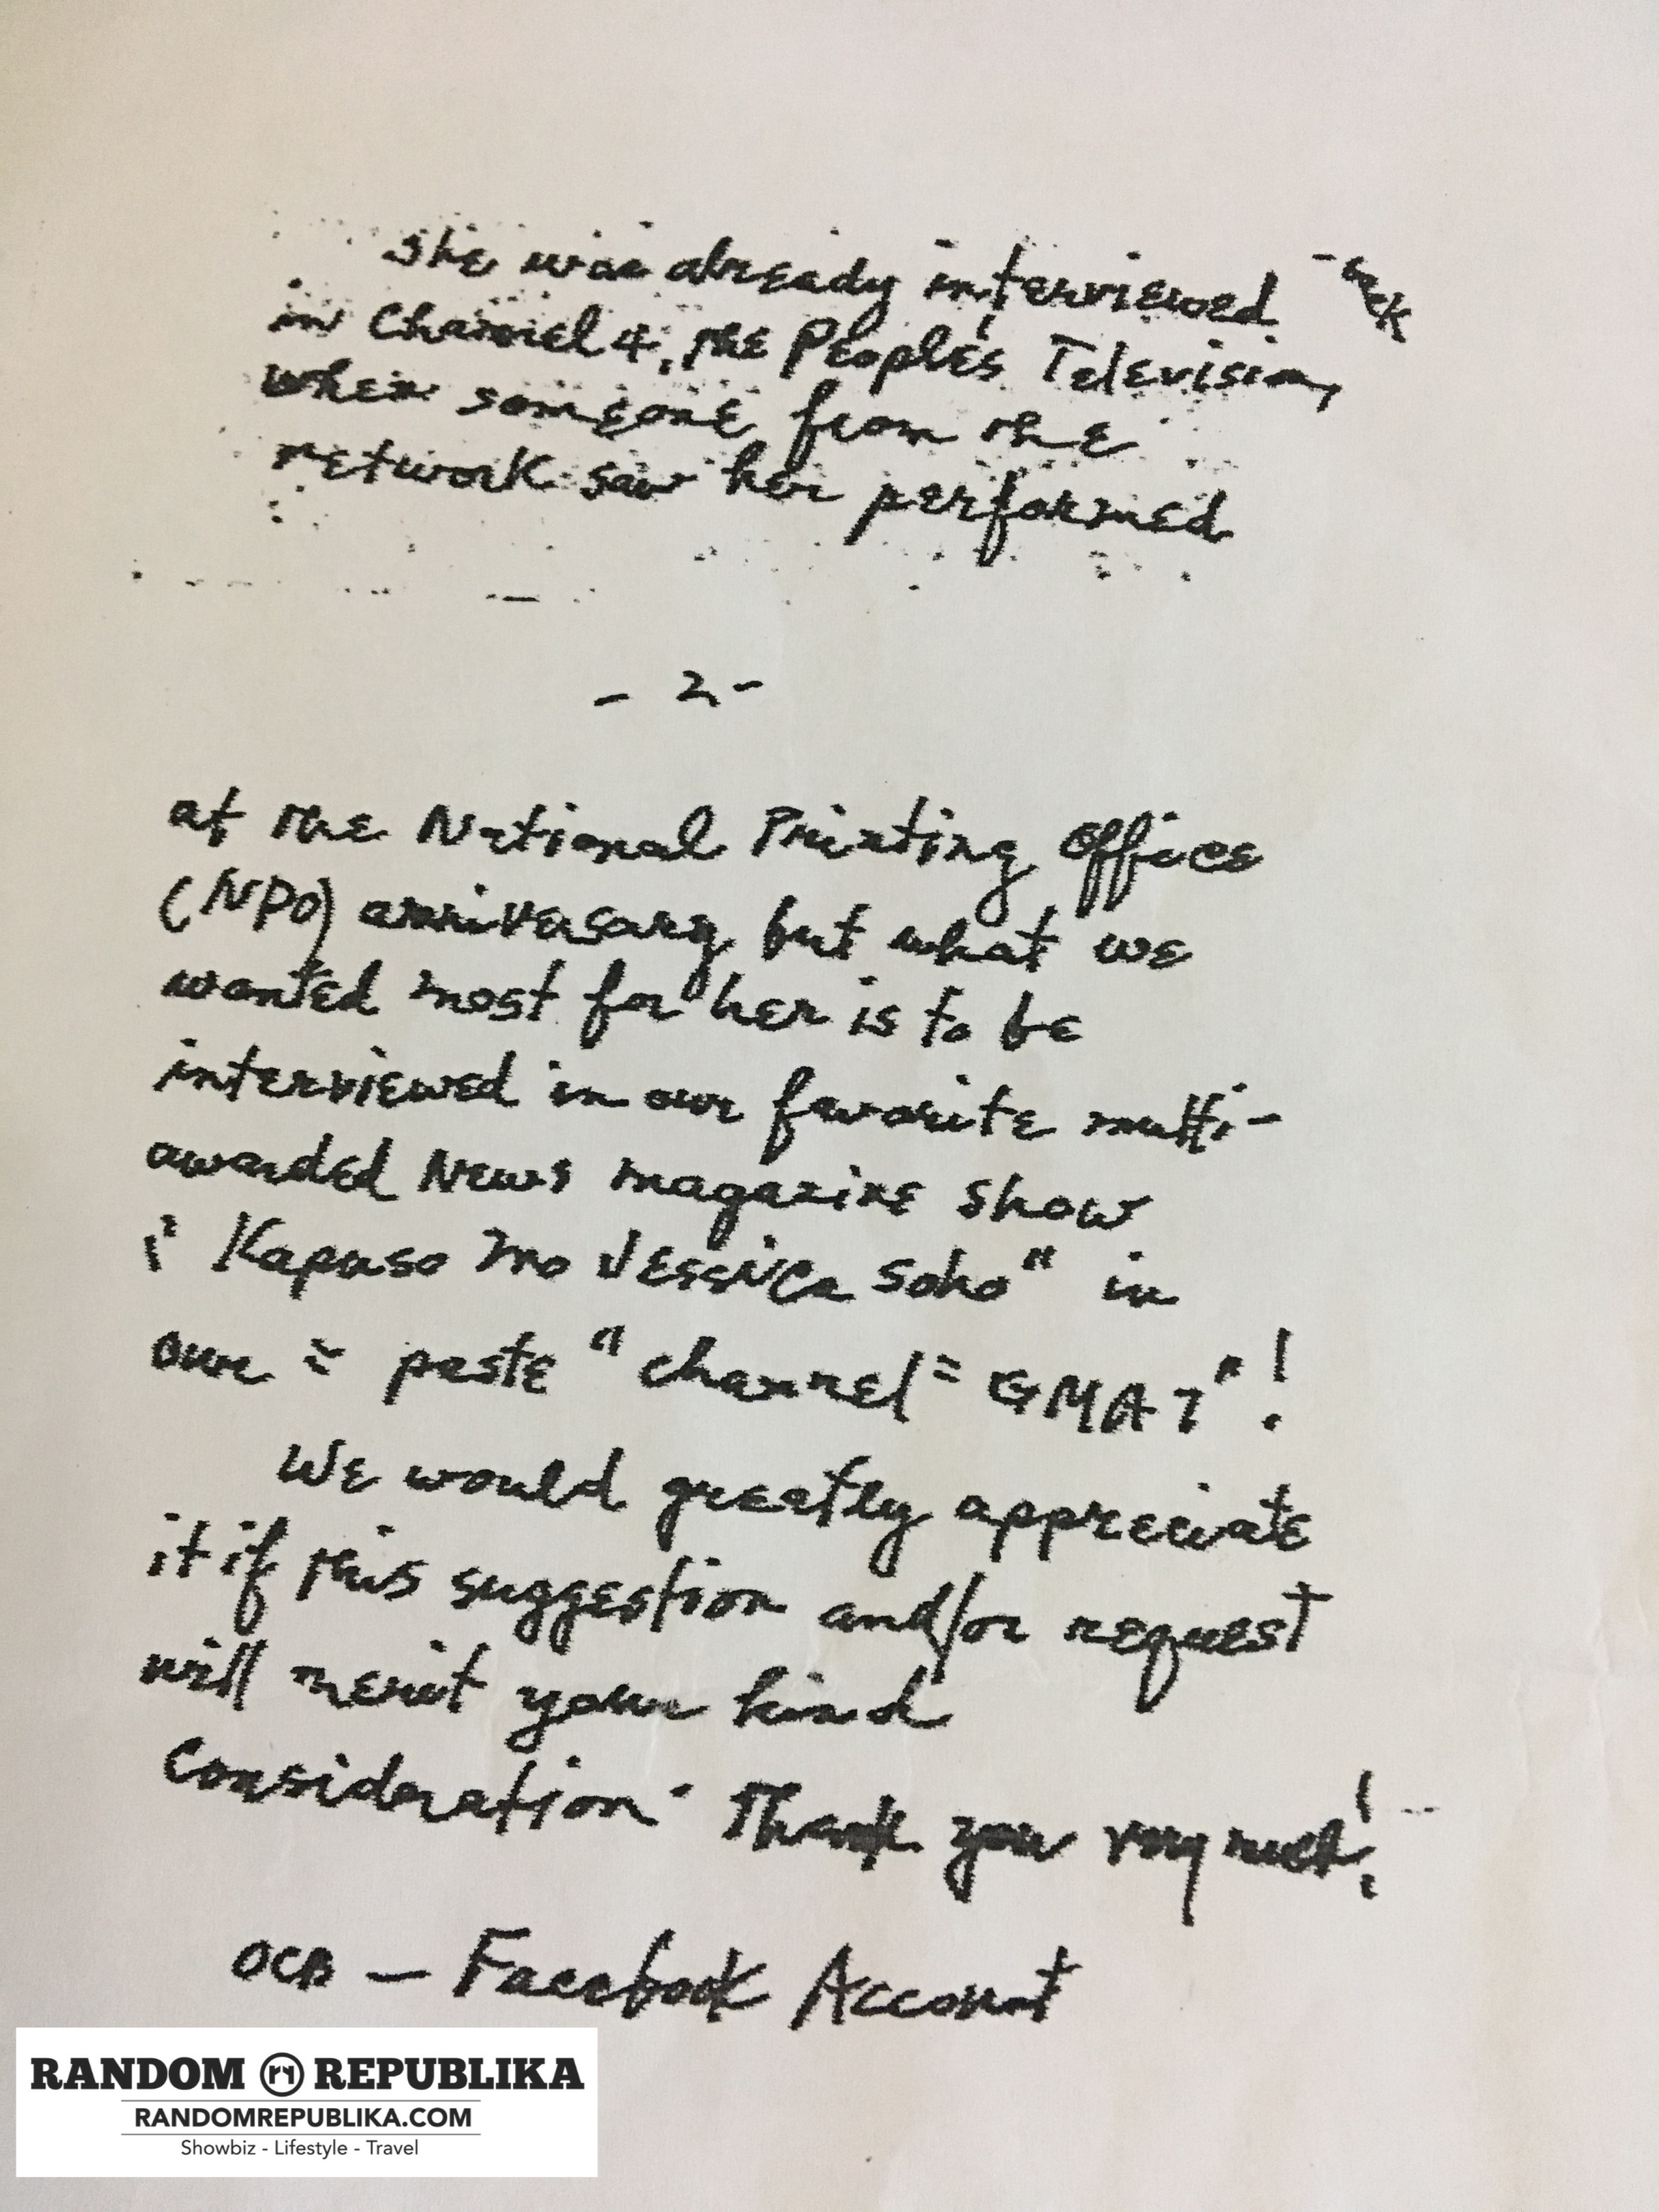 She was already interviewed
in Channel 4, the People's Television,
when someone from the
network saw her performed
- 2 -
at the National Printing Office
(NPO) anniversary but what we
wanted most for her is to be
interviewed in our favorite multi-
awarded News magazine show
" Kapuso Mo Jessica Soho" in
our = paste " channel = GMA 7" !
We would greatly appreciate
it if this suggestion and/or request
will merit your kind
Consideration. Thank you very much!
OCB — Facebook Account
RANDOM REPUBLIKA
RANDOMREPUBLIKA.COM
Showbiz - Lifestyle - Travel